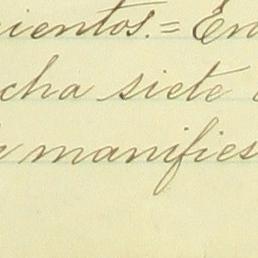 cientos.= En
cha siete
manifies